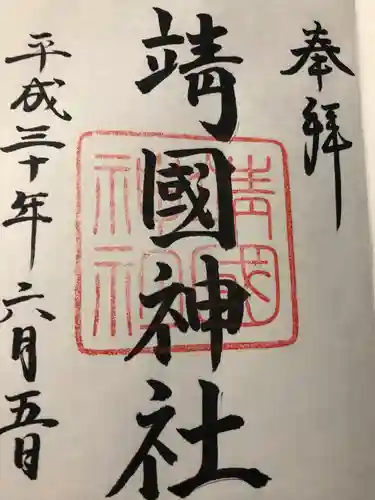 奉拝
靖國神社
平成三十年六月五日
靖國
神社